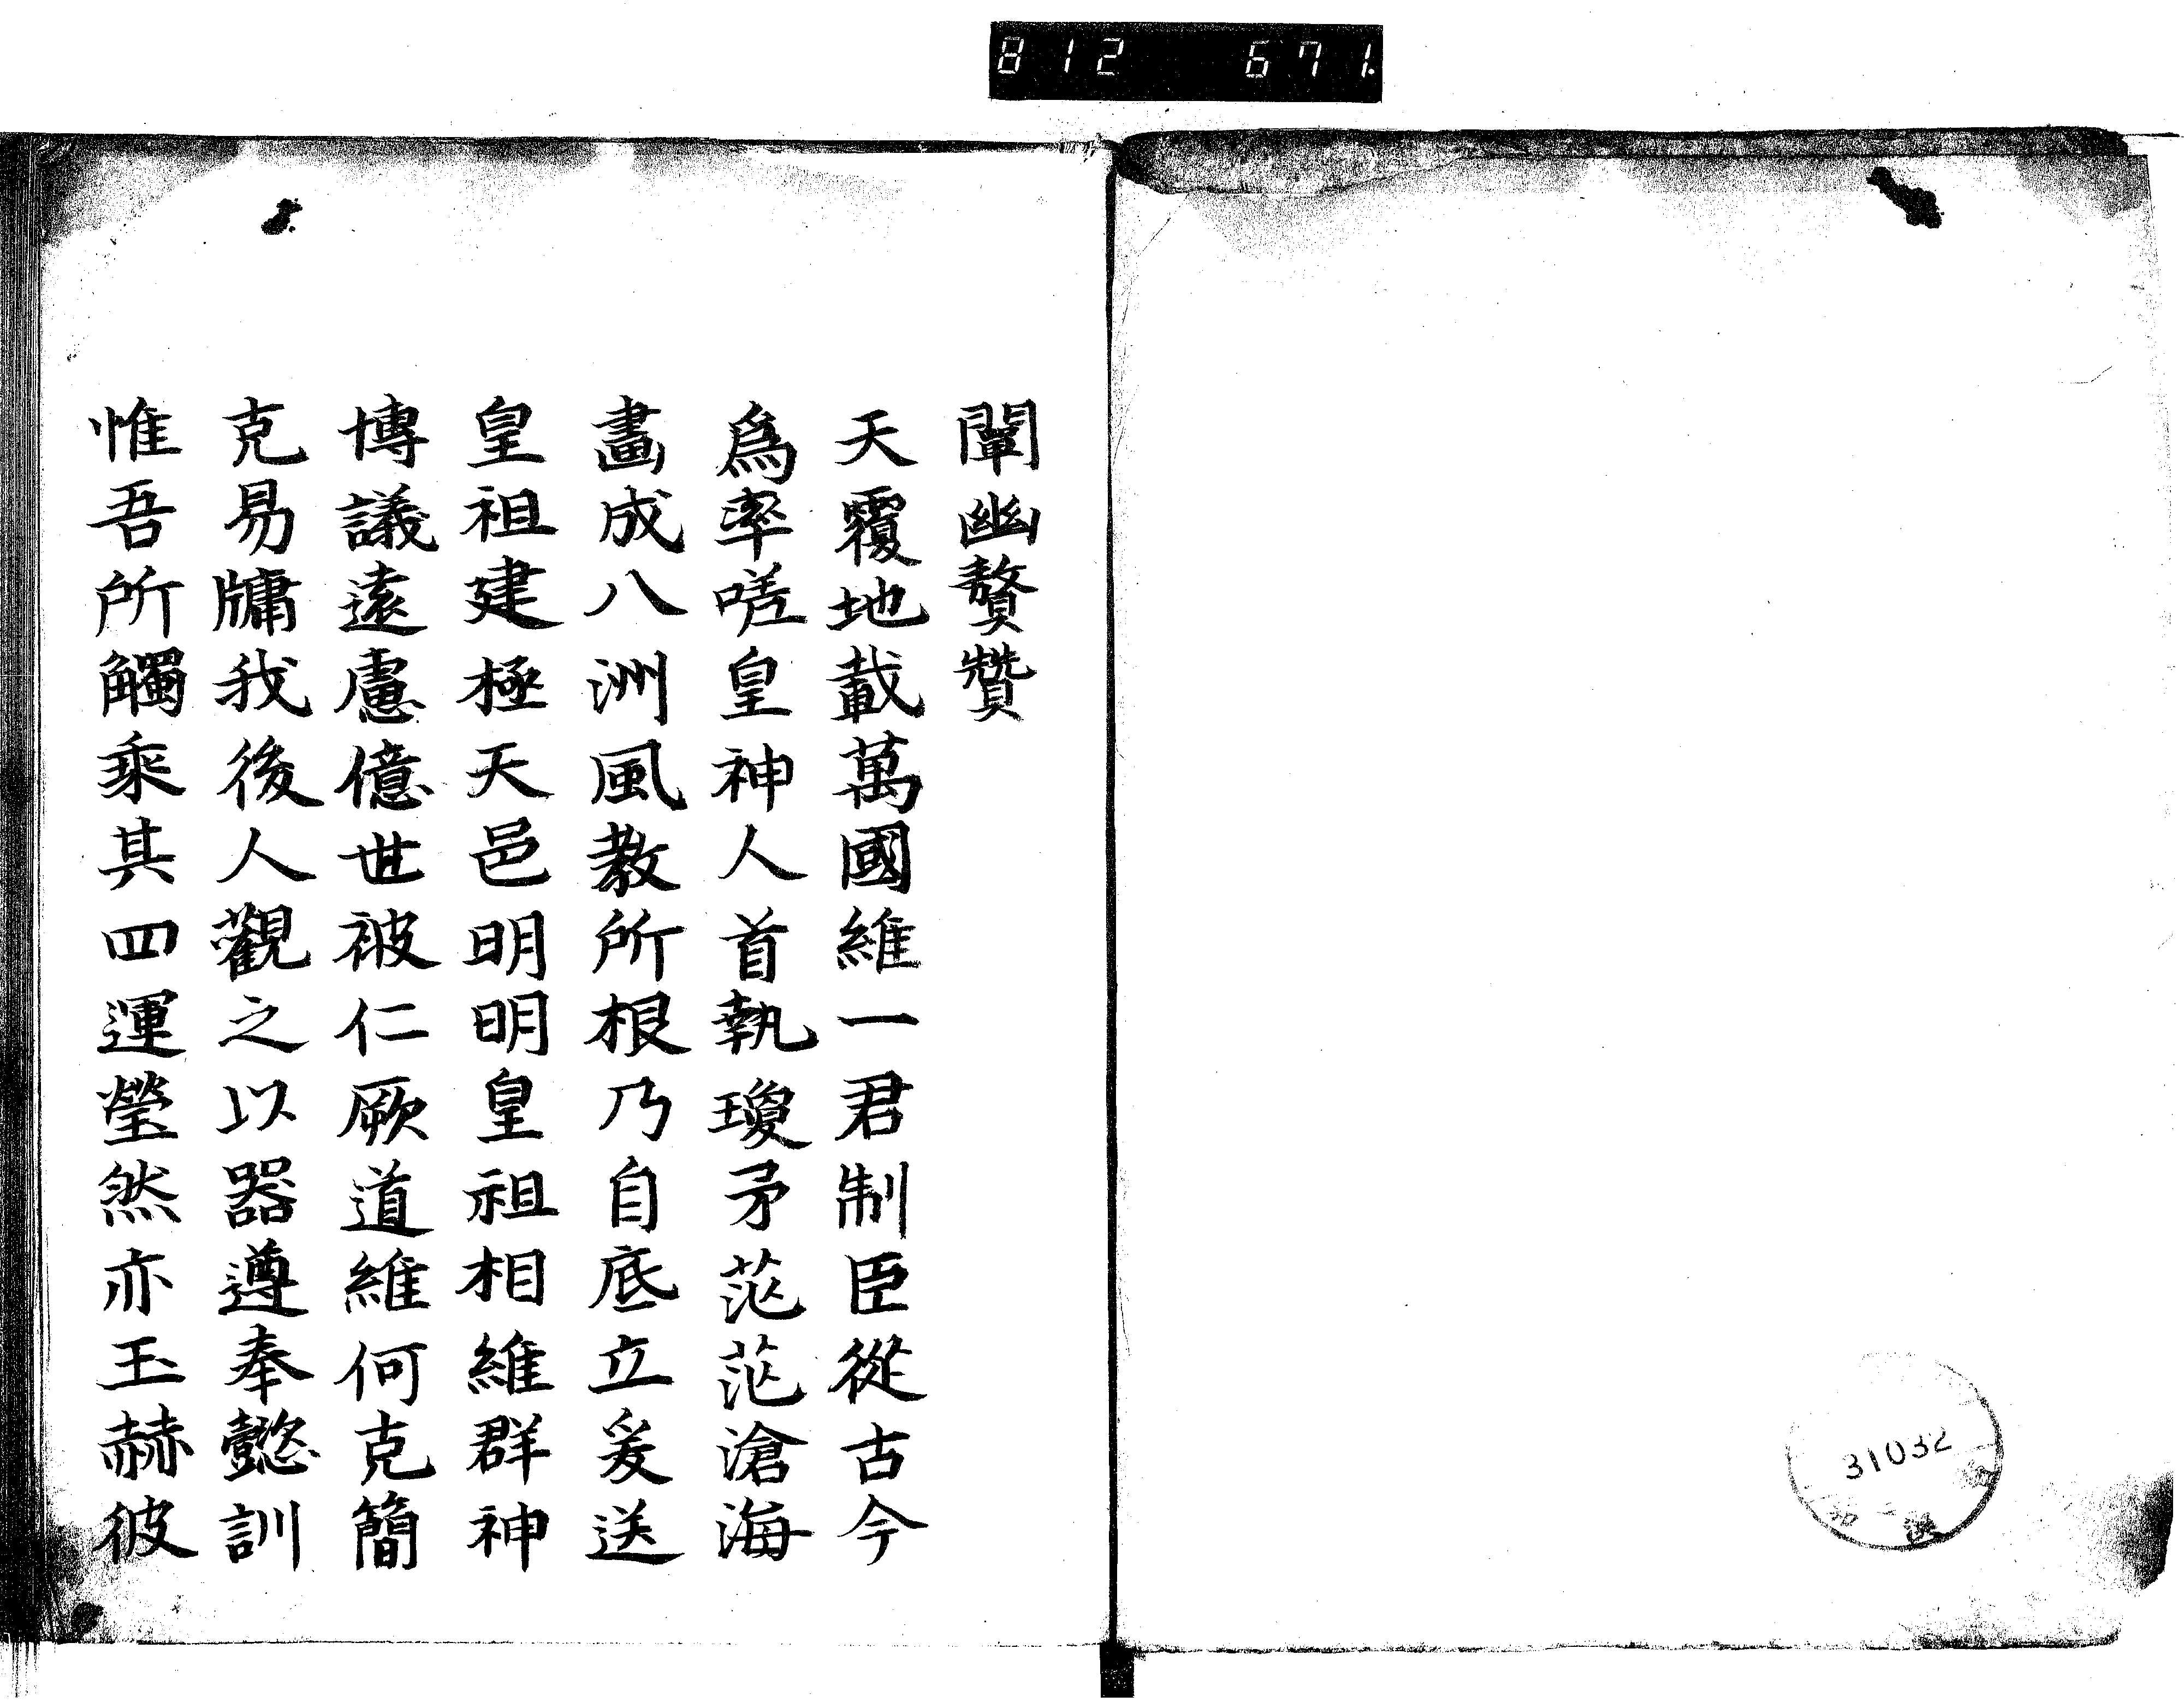 812 671.
闡幽贅贊
天覆地載萬國維一君制臣從古今
爲率嗟皇神人首執瓊矛茫茫滄海
畫成八洲風教所根乃自底立爰送
皇祖建極天邑明明皇祖相維群神
博議遠慮億世被仁厥道維何克簡
克易牖我後人觀之以器遵奉懿訓
惟吾所觸乘其四運瑩然亦玉赫彼
31032